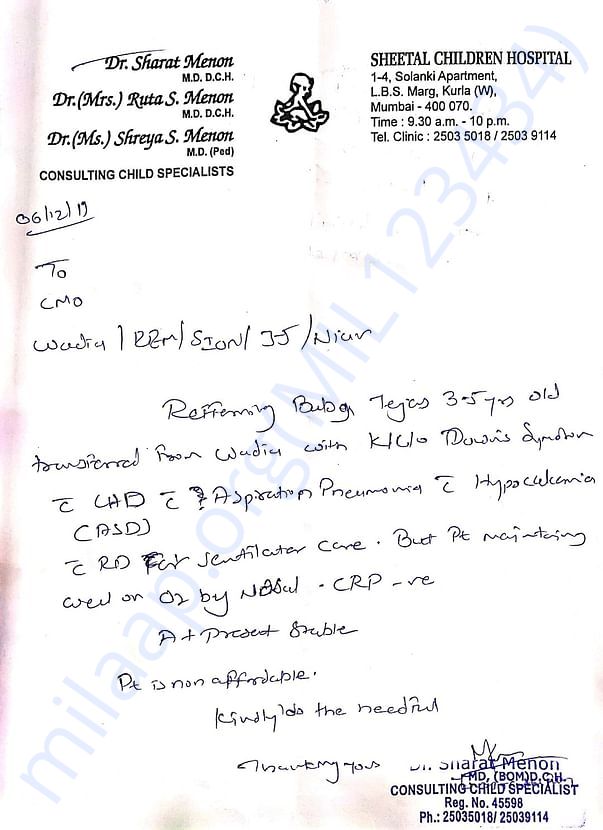 Dr. Sharat Menon
M.D. D.C.H.
Dr.(Mrs.) Ruta S. Menon
M.D. D.C.H.
Dr.(Ms.) Shreya S. Menon
M.D. (Ped)
CONSULTING CHILD SPECIALISTS
SHEETAL CHILDREN HOSPITAL
1-4, Solanki Apartment,
L.B.S. Marg, Kurla (W),
Mumbai - 400 070.
Time : 9.30 a.m. - 10 p.m.
Tel. Clinic : 2503 5018 / 2503 9114
06/12/19
To
CMO
Wadia / KEM / SION / JJ / Niar
Refferring Baby Tejas 3.5 yrs old
transferred from Wadia with K/C/o Down's Syndrom
c̄ CHD c̄ ? Aspiration Pneumonia c̄ Hypocalcemia
(ASD)
c̄ RD For Ventilator care. But Pt maintaing
well on O2 by Nasal. CRP -ve
At Present Stable
Pt is non affordable.
Kindly do the needful
Thanking you
Dr. Sharat Menon
MD, (BOM)D.C.H.
CONSULTING CHILD SPECIALIST
Reg. No. 45598
Ph.: 25035018/ 25039114
milaap.org(MIL123434)